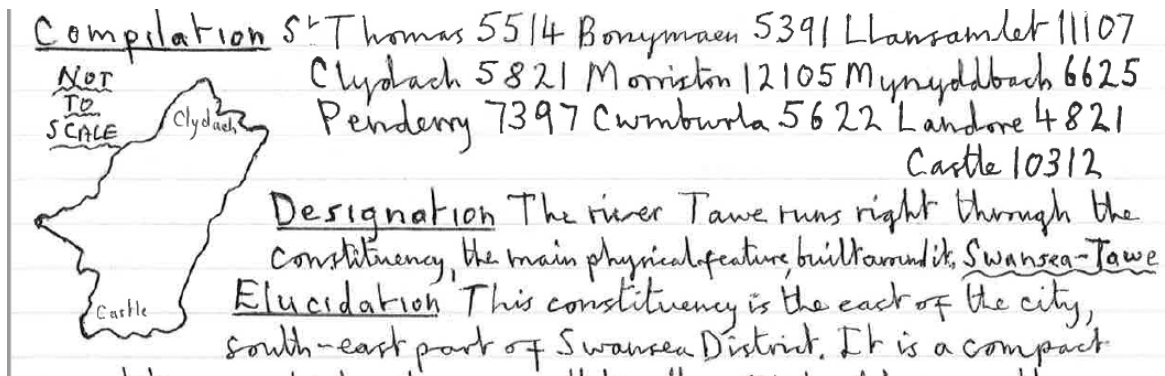 Compilation St Thomas 5514 Bonymaen 5391 Llansamlet 11107
NOT
TO
SCALE
Clydach
Clydach 5821 Morriston 12105 Mynyddbach 6625
Penderry 7397 Cwmbwrla 5622 Landore 4821
Castle 10312
Designation The river Tawe runs right through the
constituency, the main physical feature, built around it, Swansea-Tawe
Castle
Elucidation This constituency is the east of the city,
south-east part of Swansea District. It is a compact